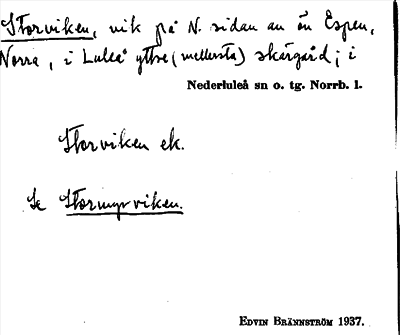 Storviken, vik på N. sidan av ön Espen,
Norra, i Luleå yttre (mellersta) skärgård; i
Nederluleå sn o. tg. Norrb. l.
Storviken ek.
Se Stormyrviken.
EDVIN BRÄNNSTRÖM 1937.